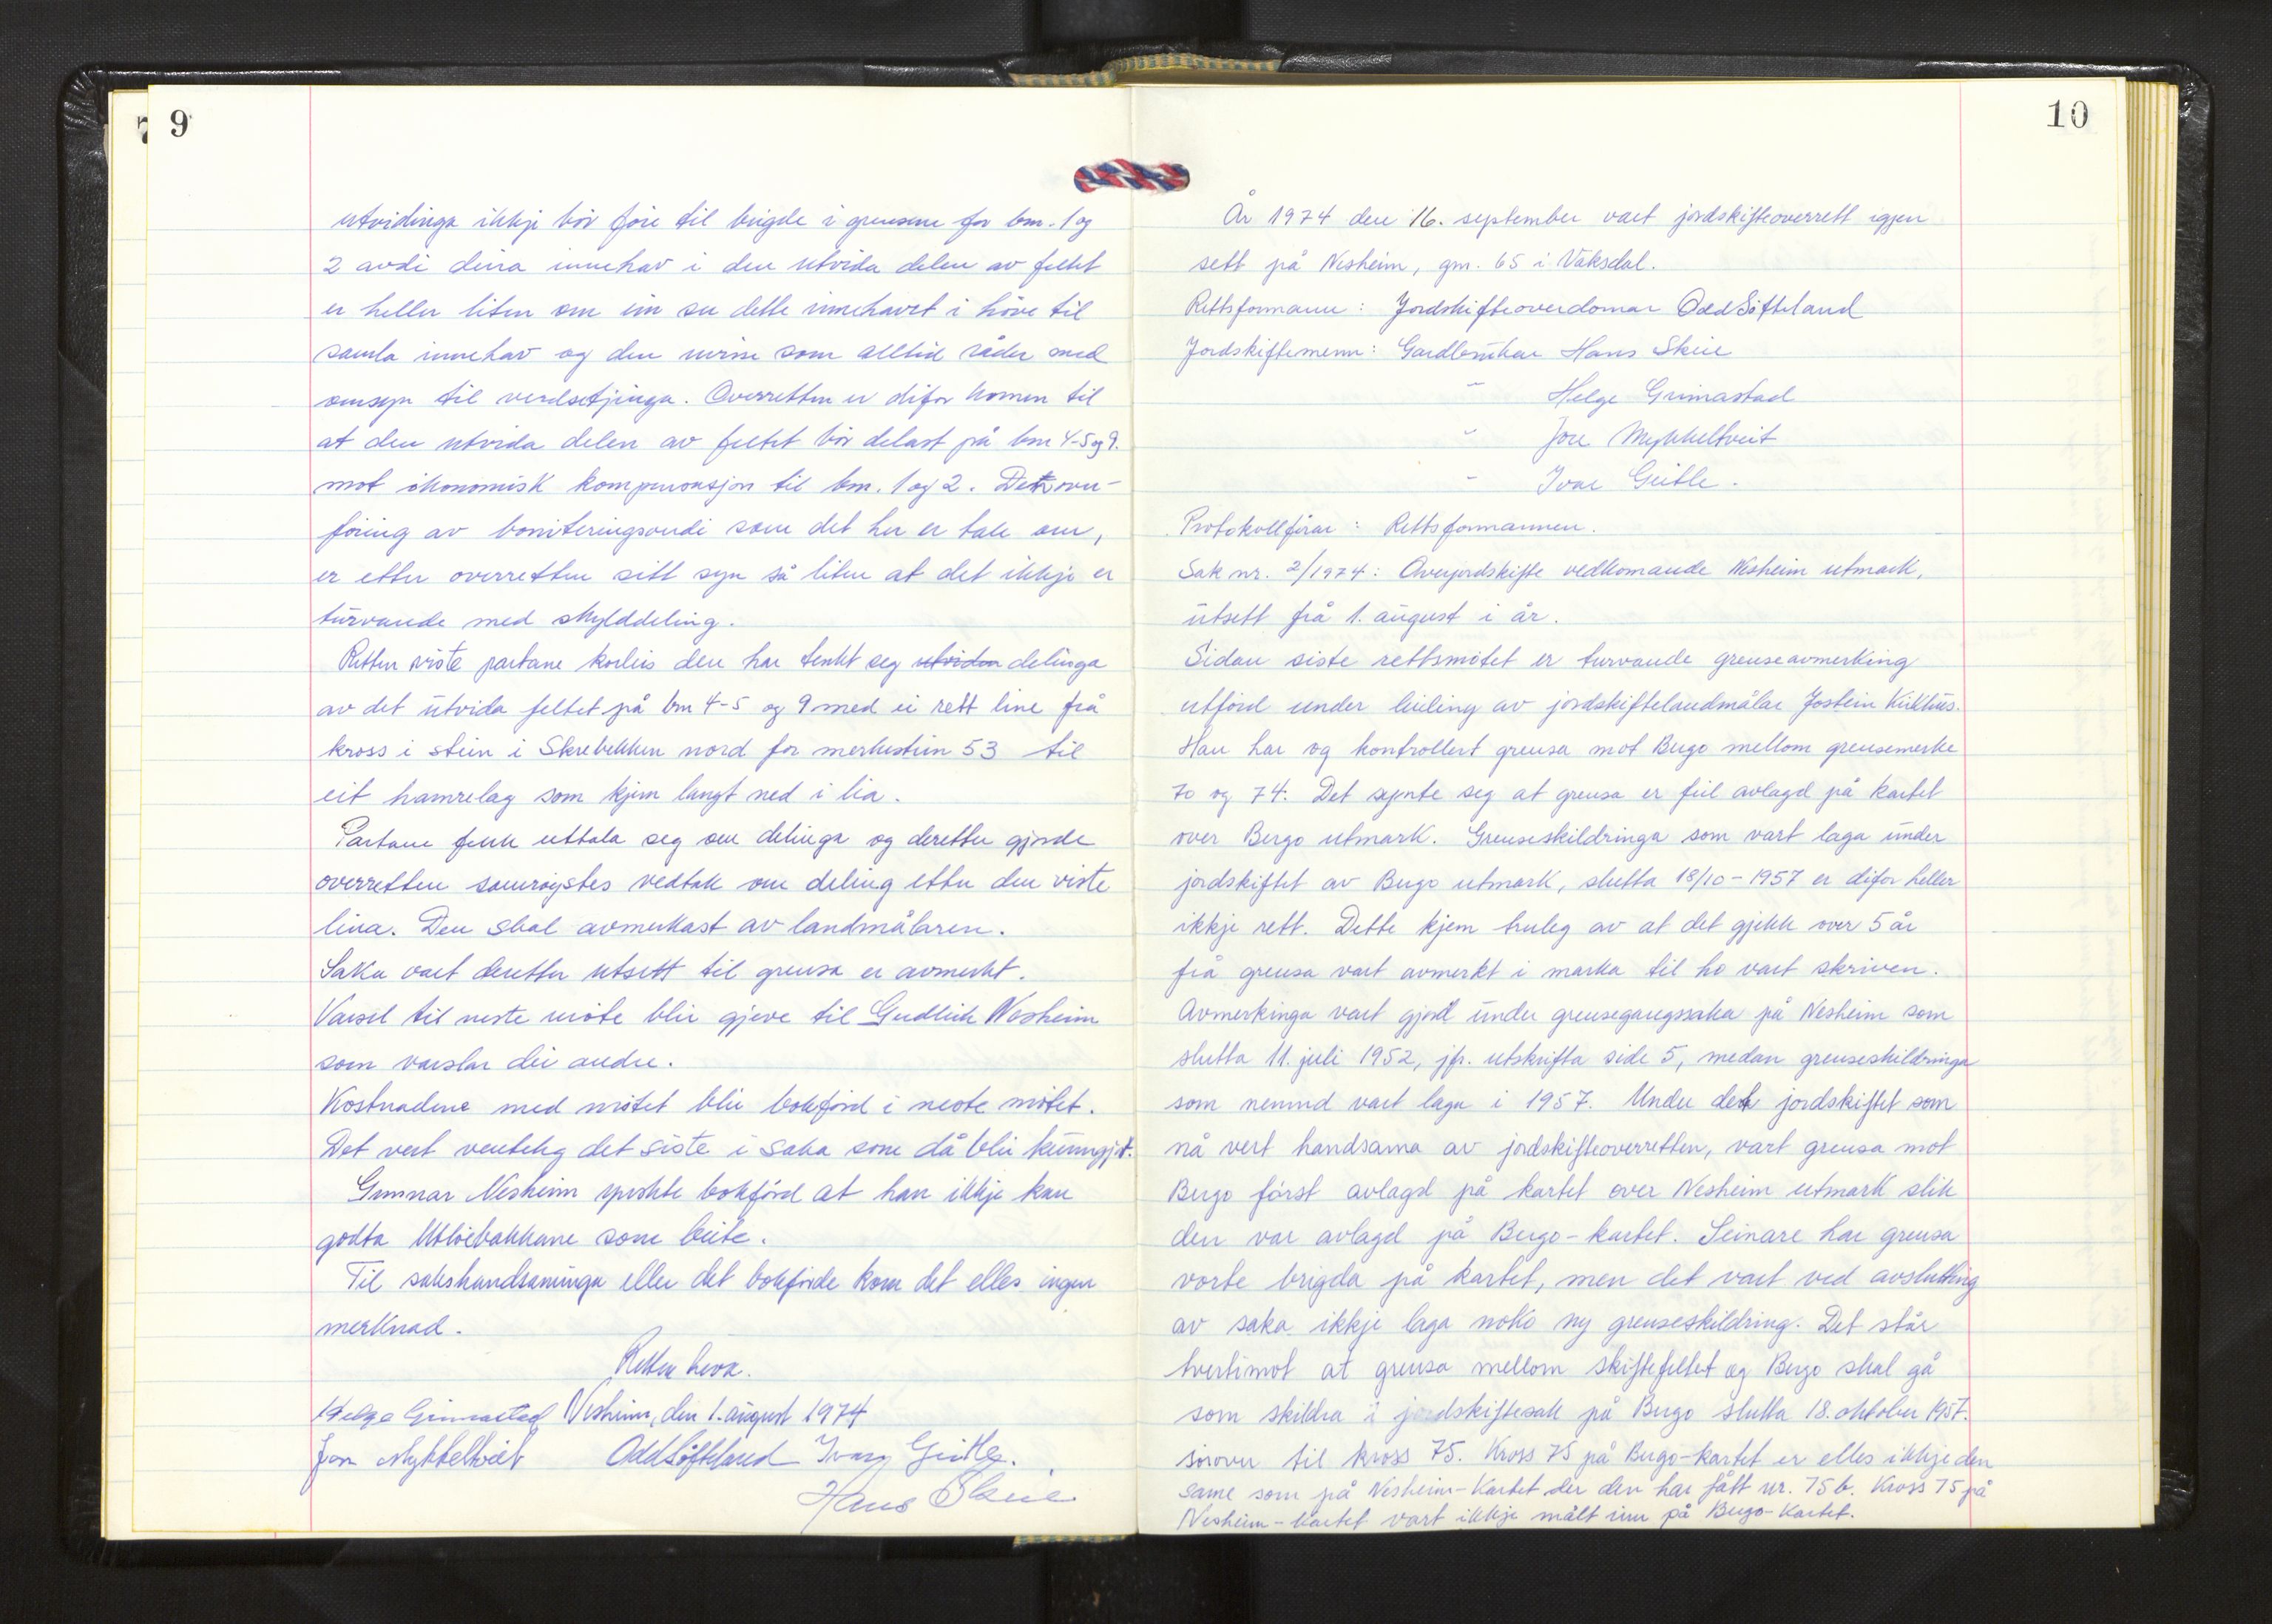 9
utvidinga ikkje bör före til brigde i grensene for bm. 1 og
2 avdi deira innehav i den utvida delen av feltet
er heller liten om ein ser dette innehavet i höve til
samla innehav og den uvisse som alltid råder med
omsyn til verdsetjinga. Overretten er difor komen til
at den utvida delen av feltet bör delast på bm 4-5 og 9.
mot ökonomisk kompensasjon til bm. 1 og 2. Den over-
föring av boniteringsverdi som det her er tale om,
er etter overretten sitt syn så liten at det ikkje er
turvande med skylddeling.
Retten viste partane korleis den har tenkt seg utviden delinga
av det utvida feltet på bm 4-5 og 9 med ei rett line frå
kross i stein i Skrebekken nord for merkestein 53 til
eit hamrelag som kjem langt ned i lia.
Partane fekk uttala seg om delinga og deretter gjorde
overretten samröystes vedtak om deling etter den viste
lina. Den skal avmerkast av landmålaren.
Saka vart deretter utsett til grensa er avmerkt.
Varsel til neste möte blir gjeve til Gudleik Nesheim
som varslar dei andre.
Kostnadene med mötet blir bokförd i neste mötet.
Det vert venteleg det siste i saka som då blir kunngjort.
Gunnar Nesheim ynskte bokförd at han ikkje kan
godta Utlöebakkane som beite.
Til sakshandsaminga eller det bokförde kom det elles ingen
merknad.
Retten heva.
Nesheim, den 1. august 1974
Helge Grimastad
Jon Mykkeltveit Odd Söfteland Ivar Geitle.
Hans Skeie
10
År 1974 den 16. september vart jordskifteoverrett igjen
sett på Nesheim, gnr. 65 i Vaksdal.
Rettsformann: Jordskifteoverdomar Odd Söfteland
Jordskiftemenn: Gardbrukar Hans Skeie
" Helge Grimastad
" Jon Mykkeltveit
" Ivar Geitle.
Protokollförar: Rettsformannen.
Sak nr. 2/1974: Overjordskifte vedkomande Nesheim utmark,
utsett frå 1. august i år.
Sidan siste rettsmötet er turvande grenseavmerking
utförd under leiing av jordskiftelandmålar Jostein
Han har og kontrollert grensa mot Bergo mellom grensemerke
70 og 74. Det synte seg at grensa er feil avlagd på kartet
over Bergo utmark. Grenseskildringa som vart laga under
jordskiftet av Bergo utmark, slutta 18/10-1957 er difor heller
ikkje rett. Dette kjem truleg av at det gjekk over 5 år
frå grensa vart avmerkt i marka til ho vart skriven.
Avmerkinga vart gjord under grensegangssaka på Nesheim som
slutta 11. juli 1952, jfr. utskrifta side 5, medan grenseskildringa
som nemnd vart laga i 1957. Under det jordskiftet som
nå vert handsama av jordskifteoverretten, vart grensa mot
Bergo först avlagd på kartet over Nesheim utmark slik
den var avlagd på Bergo-kartet. Seinare har grensa
vorte brigda på kartet, men det vart ved avslutting
av saka ikkje laga noko ny grenseskildring. Det står
tvertimot at grensa mellom skiftefeltet og Bergo skal gå
som skildra i jordskiftesak på Bergo slutta 18. oktober 1957.
sörover til kross 75. Kross 75 på Bergo-kartet er elles ikkje den
same som på Nesheim-kartet der den har fått nr. 75 b. Kross 75 på
Nesheim-kartet vart ikkje målt inn på Bergo-kartet.